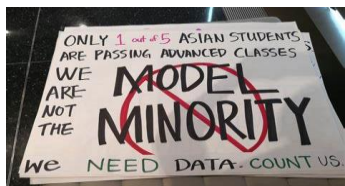 ONLY 1 out of 5 ASIAN STUDENTS
ARE PASSING ADVANCED CLASSES
WE
ARE
NOT
THE
MODEL
MINORITY
We NEED DATA. COUNT US.